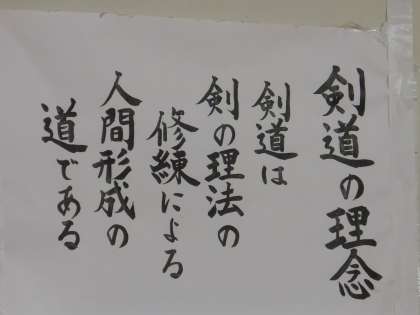 剣道の理念
剣道は
剣の理法の
修練による
人間形成の
道である